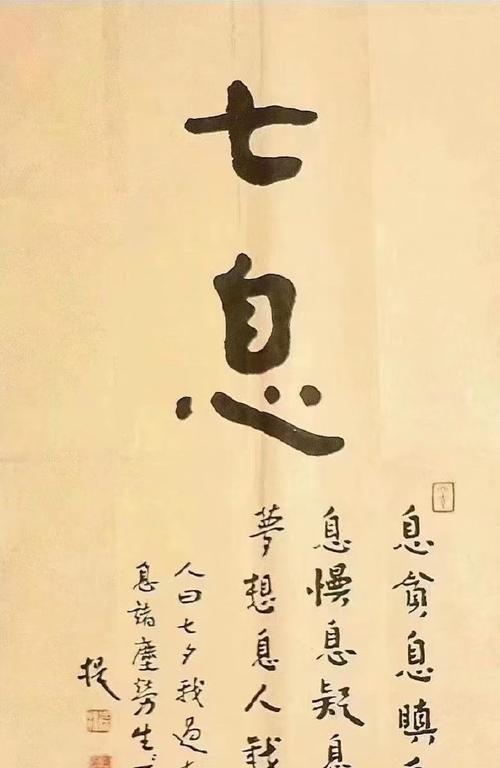 七息
息貪息瞋
息慢息疑息
夢想息人我
人曰七夕我過
息諸塵勞生
提